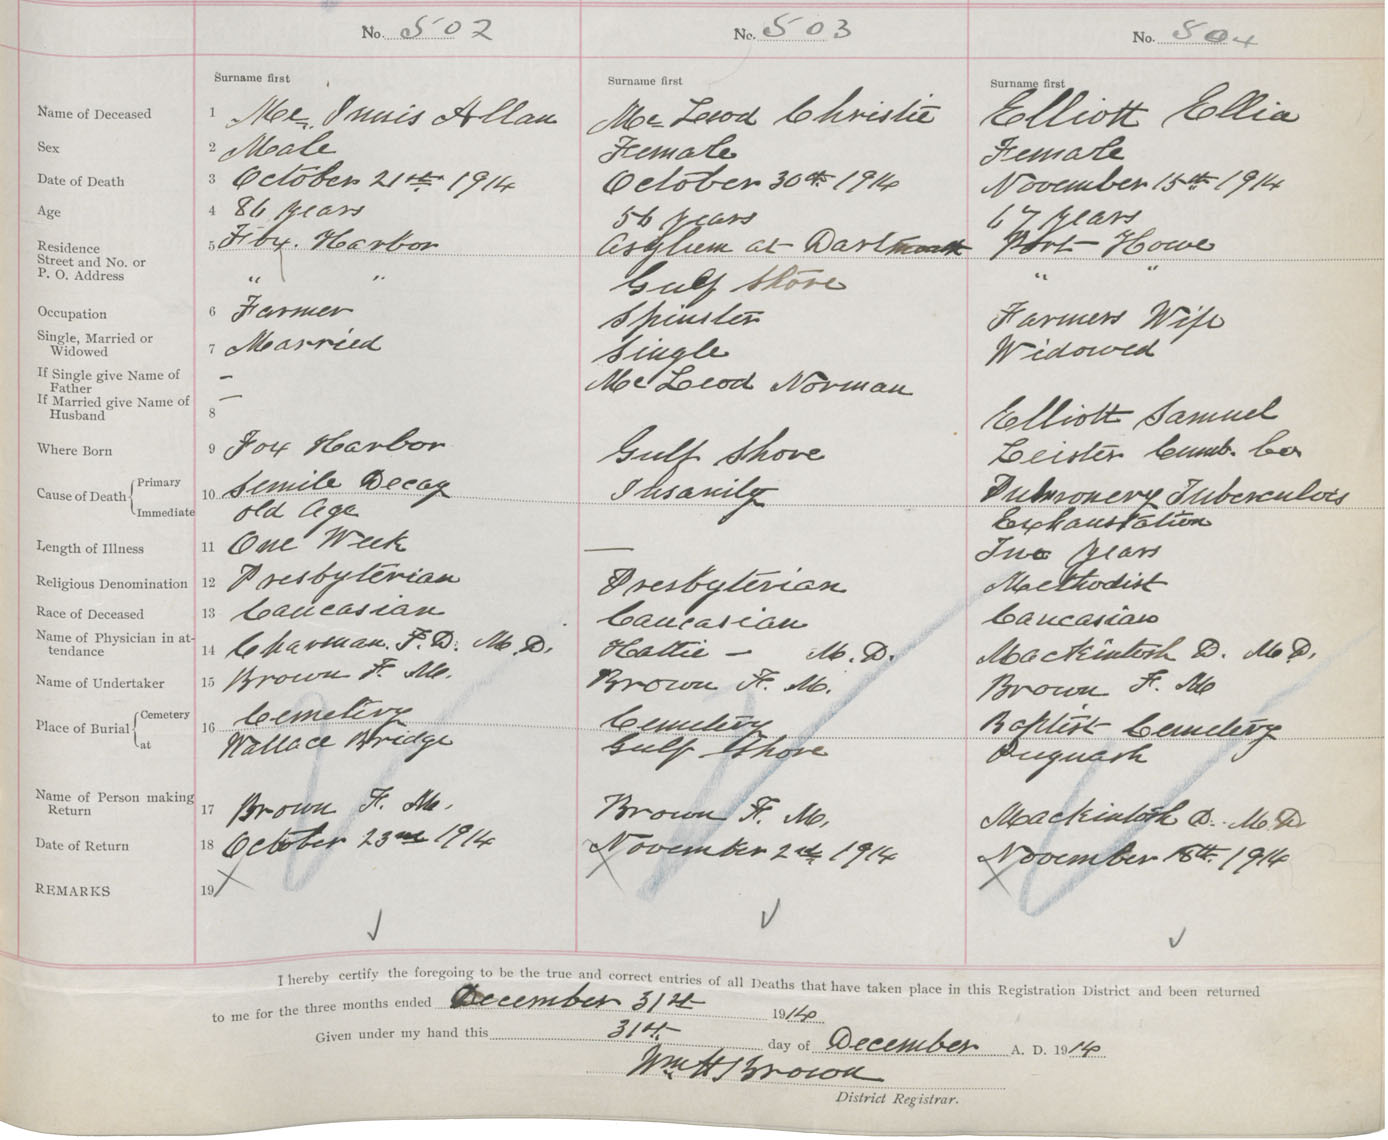 No. 502 No. 503 No. 504
Surname first Surname first Surname first
Name of Deceased 1 Mc Innis Allan Mc Leod Christie Elliott Ellia
Sex 2 Male Female Female
Date of Death 3 October 21st 1914 October 30th 1914 November 15th 1914
Age 4 86 years 56 years 67 years
Residence 5 Fox Harbor Asylum at Dartmouth Port Howe
Street and No. or
P. O. Address " " Gulf Shore " "
Occupation 6 Farmer Spinster Farmers Wife
Single, Married or
Widowed 7 Married Single Widowed
If Single give Name of
Father – Mc Leod Norman
If Married give Name of
Husband 8 — Elliott Samuel
Where Born 9 Fox Harbor Gulf Shore Leister Cumb. Co
Cause of Death { Primary 10 Senile Decay Insanity Pulmonery Tuberculois
Immediate old Age Exhaustation
Length of Illness 11 One Week — Two years
Religious Denomination 12 Presbyterian Presbyterian Methodist
Race of Deceased 13 Caucasian Caucasian Caucasian
Name of Physician in at-
tendance 14 Charman. F. D. M. D. Hattie – M. D. Mackintosh D. M. D.
Name of Undertaker 15 Brown F. M. Brown F. M. Brown F. M
Place of Burial { Cemetery 16 Cemetery Cemetery Baptist Cemetery
at Wallace Bridge Gulf Shore Pugwash
Name of Person making
Return 17 Brown F. M. Brown F. M. Mackintosh D. M. D
Date of Return 18 October 23rd 1914 November 2nd 1914 November 18th. 1914
REMARKS 19
I hereby certify the foregoing to be the true and correct entries of all Deaths that have taken place in this Registration District and been returned
to me for the three months ended December 31st 1914
Given under my hand this 31st. day of December A. D. 1914
Wm H Brown
District Registrar.